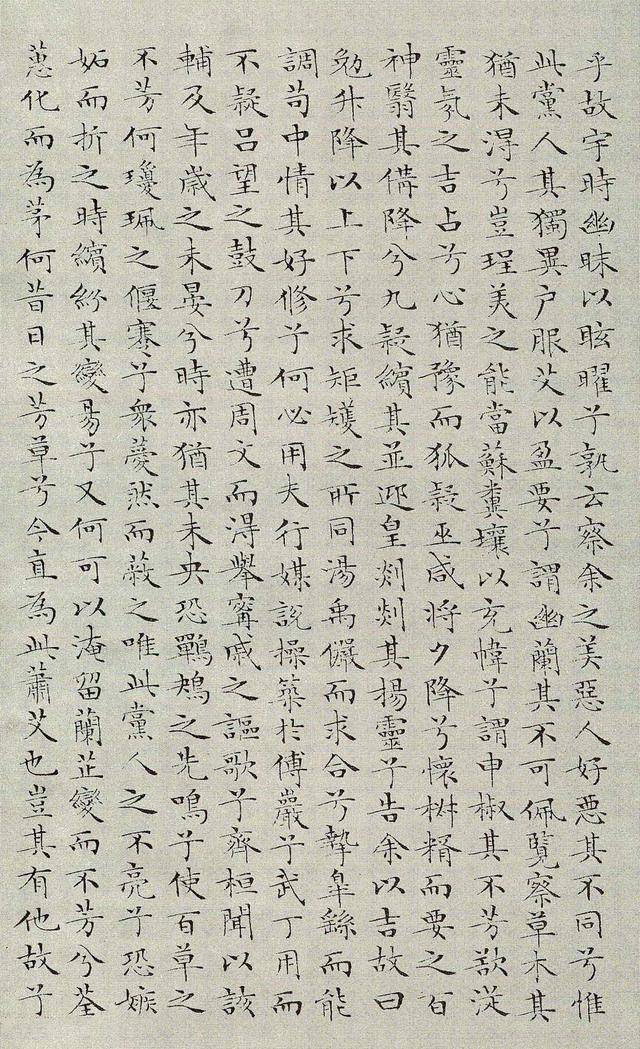 乎故宇時幽昧以眩曜兮孰云察余之美惡人好惡其不同兮惟
此黨人其獨異户服艾以盈要兮謂幽蘭其不可佩覽察草木其
猶未得兮豈珵美之能當蘇糞壤以充幃兮謂申椒其不芳欲從
靈氛之吉占兮心猶豫而狐疑巫咸將夕降兮懷椒糈而要之百
神翳其備降兮九疑繽其並迎皇剡剡其揚靈兮告余以吉故曰
勉升降以上下兮求矩矱之所同湯禹儼而求合兮摯皐繇而能
調苟中情其好修兮何必用夫行媒說操築於傅巖兮武丁用而
不疑吕望之鼓刀兮遭周文而得舉甯戚之謳歌兮齊桓聞以該
輔及年歲之未晏兮時亦猶其未央恐鷤鴂之先鳴兮使百草之
不芳何瓊珮之偃蹇兮衆薆然而蔽之唯此黨人之不亮兮恐嫉
妬而折之時繽紛其變易兮又何可以淹留蘭芷變而不芳兮荃
蕙化而為茅何昔日之芳草兮今直為此蕭艾也豈其有他故兮